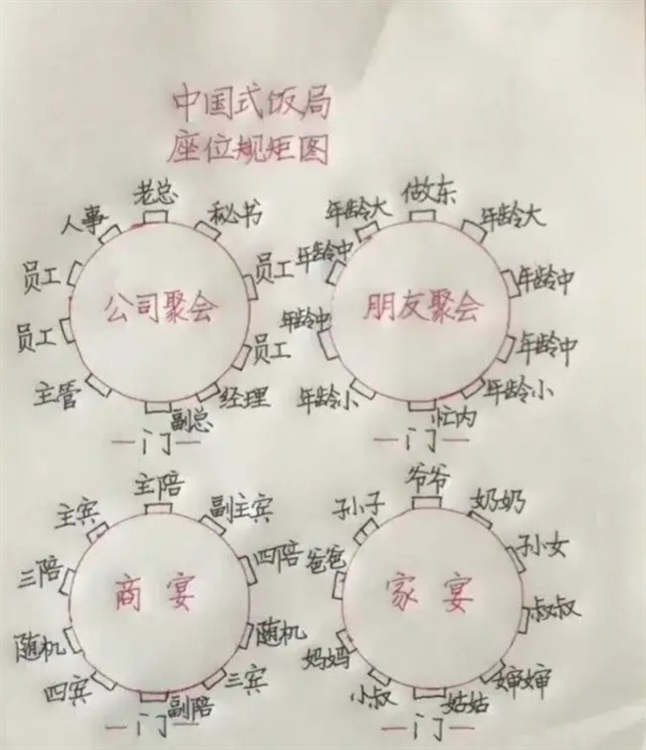 中国式饭局
座位规矩图
老总
人事
秘书
员工
员工
员工
员工
公司聚会
主管
经理
副总
门
做东
年龄大
年龄大
年龄中
年龄中
年龄中
年龄中
朋友聚会
年龄小
年龄小
忙内
门
主陪
主宾
副主宾
三陪
四陪
商宴
随机
随机
四宾
三宾
副陪
门
爷爷
孙子
奶奶
爸爸
孙女
家宴
叔叔
妈妈
小叔
婶婶
姑姑
门